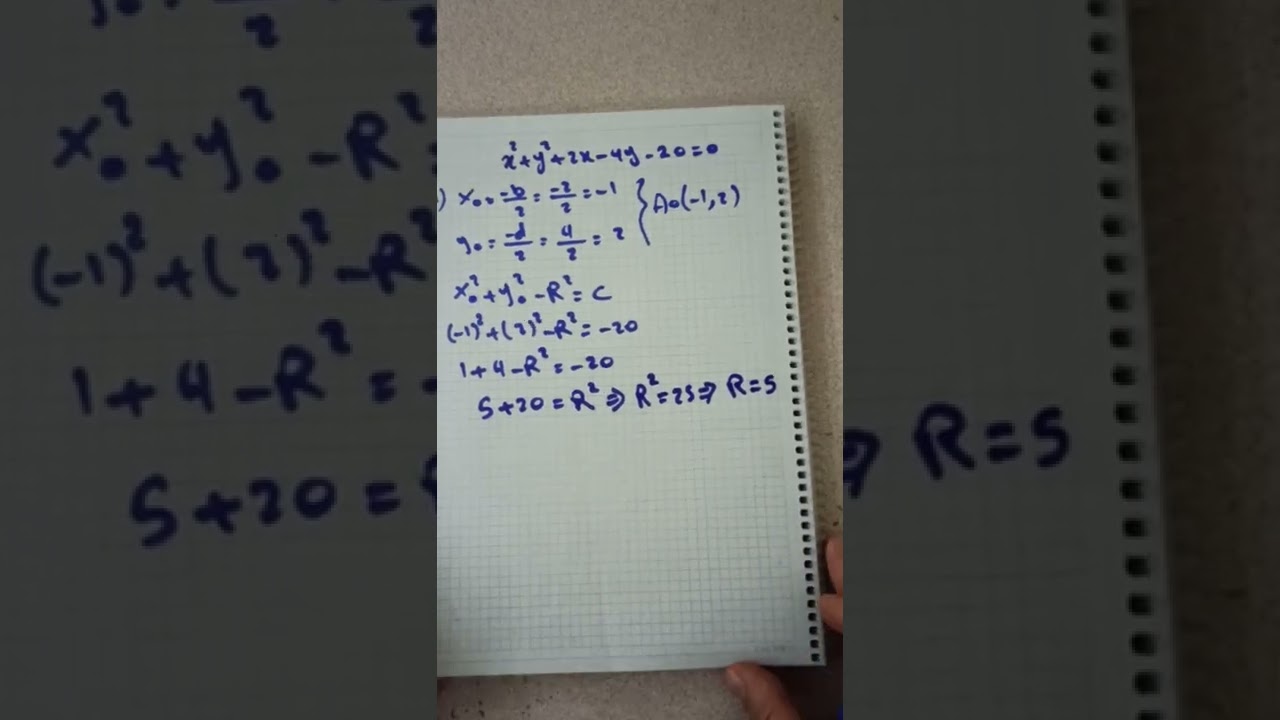 x²+y²+2x-4y-20=0
) x₀ = -b/2 = -2/2 = -1 } A₀(-1,2)
y₀ = -d/2 = 4/2 = 2
x₀²+y₀²-R²=C
(-1)²+(2)²-R²=-20
1+4-R²=-20
5+20=R²⇒R²=25⇒R=5